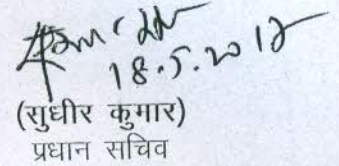 18.5.2012
(सुधीर कुमार)
प्रधान सचिव